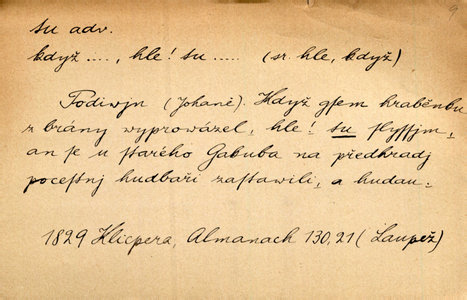 9
su adv.
když ...., hle! su ..... (sr. hle, když)
Podiwjn (Johaně). Když gsem hraběnku
z brány wyprowázel, hle! su slyssjm,
an se u starého Gabuba na předhradj
pocestnj hudbaři zastawili, a hudau.
1829 Klicpera, Almanach 130,21 (Laupež)